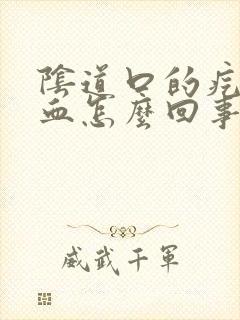 陰道口的
血怎麼回事
威武千軍